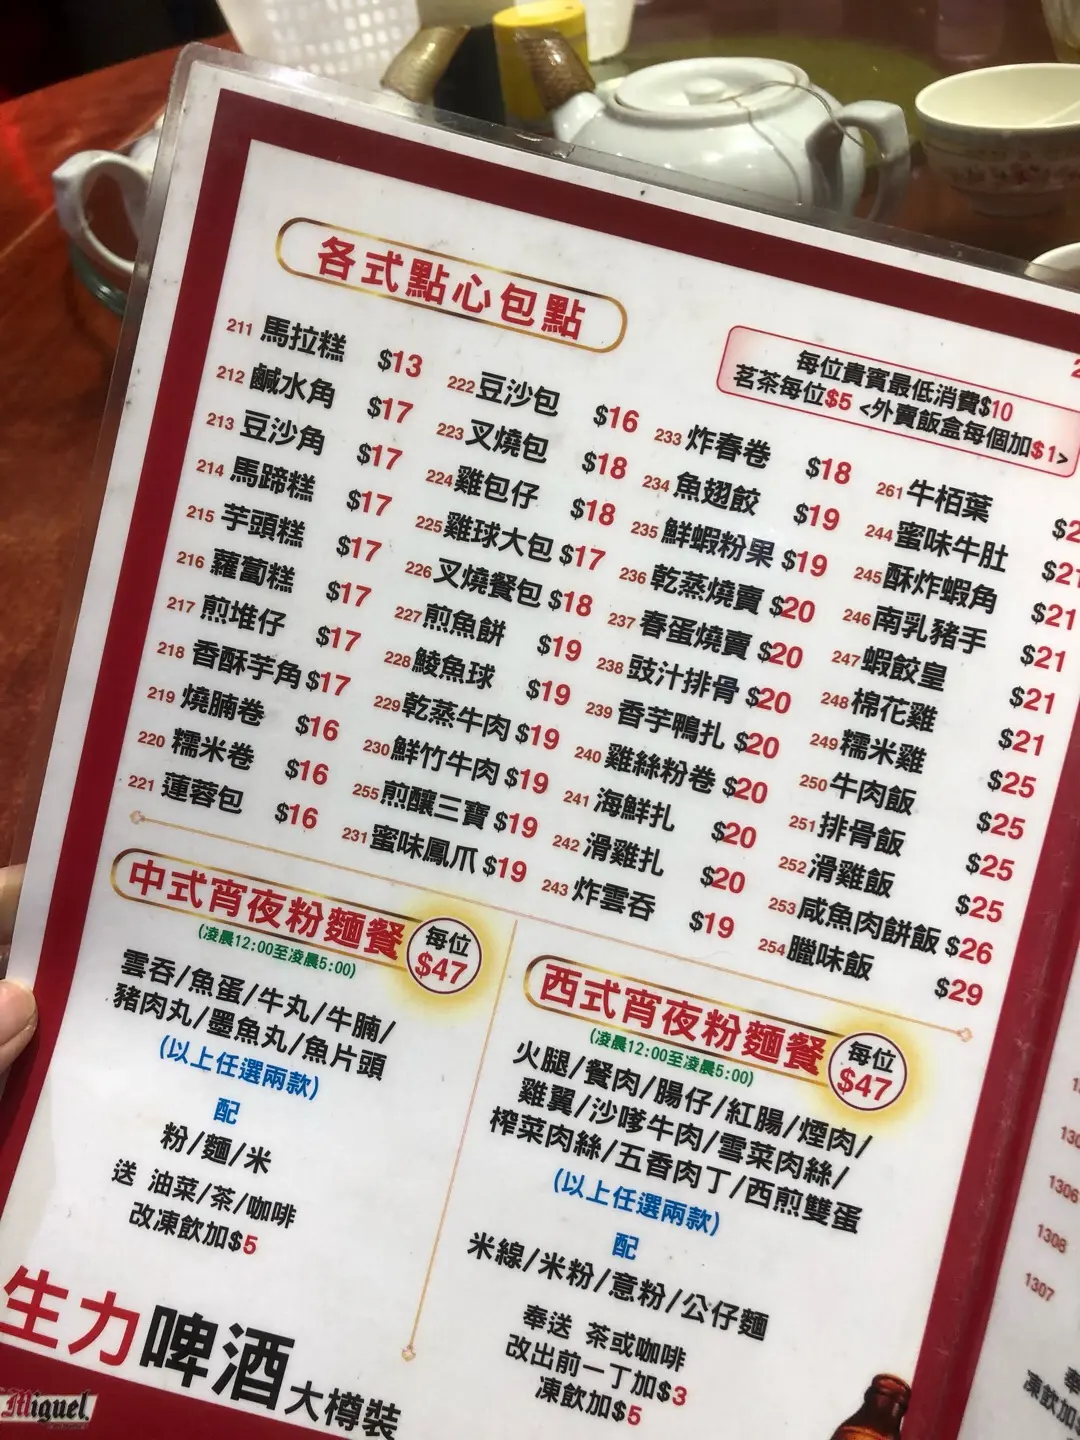 各式點心包點
每位貴賓最低消費$10
茗茶每位$5 <外賣飯盒每個加$1>
211 馬拉糕 $13
212 鹹水角 $17
213 豆沙角 $17
214 馬蹄糕 $17
215 芋頭糕 $17
216 蘿蔔糕 $17
217 煎堆仔 $17
218 香酥芋角 $17
219 燒腩卷 $16
220 糯米卷 $16
221 蓮蓉包 $16
222 豆沙包 $16
223 叉燒包 $18
224 雞包仔 $18
225 雞球大包 $17
226 叉燒餐包 $18
227 煎魚餅 $19
228 鯪魚球 $19
229 乾蒸牛肉 $19
230 鮮竹牛肉 $19
255 煎釀三寶 $19
231 蜜味鳳爪 $19
233 炸春卷 $18
234 魚翅餃 $19
235 鮮蝦粉果 $19
236 乾蒸燒賣 $20
237 春蛋燒賣 $20
238 豉汁排骨 $20
239 香芋鴨扎 $20
240 雞絲粉卷 $20
241 海鮮扎 $20
242 滑雞扎 $20
243 炸雲吞 $19
261 牛栢葉
244 蜜味牛肚 $21
245 酥炸蝦角 $21
246 南乳豬手 $21
247 蝦餃皇 $21
248 棉花雞 $21
249 糯米雞 $25
250 牛肉飯 $25
251 排骨飯 $25
252 滑雞飯 $25
253 咸魚肉餅飯 $26
254 臘味飯 $29
中式宵夜粉麵餐
每位
$47
(凌晨12:00至凌晨5:00)
雲吞/魚蛋/牛丸/牛腩/
豬肉丸/墨魚丸/魚片頭
(以上任選兩款)
配
粉/麵/米
送 油菜/茶/咖啡
改凍飲加$5
西式宵夜粉麵餐
每位
$47
(凌晨12:00至凌晨5:00)
火腿/餐肉/腸仔/紅腸/煙肉/
雞翼/沙嗲牛肉/雪菜肉絲/
榨菜肉絲/五香肉丁/西煎雙蛋
(以上任選兩款)
配
米線/米粉/意粉/公仔麵
奉送 茶或咖啡
改出前一丁加$3
凍飲加$5
生力啤酒大樽裝
Miguel
1306
1308
1307
凍飲加